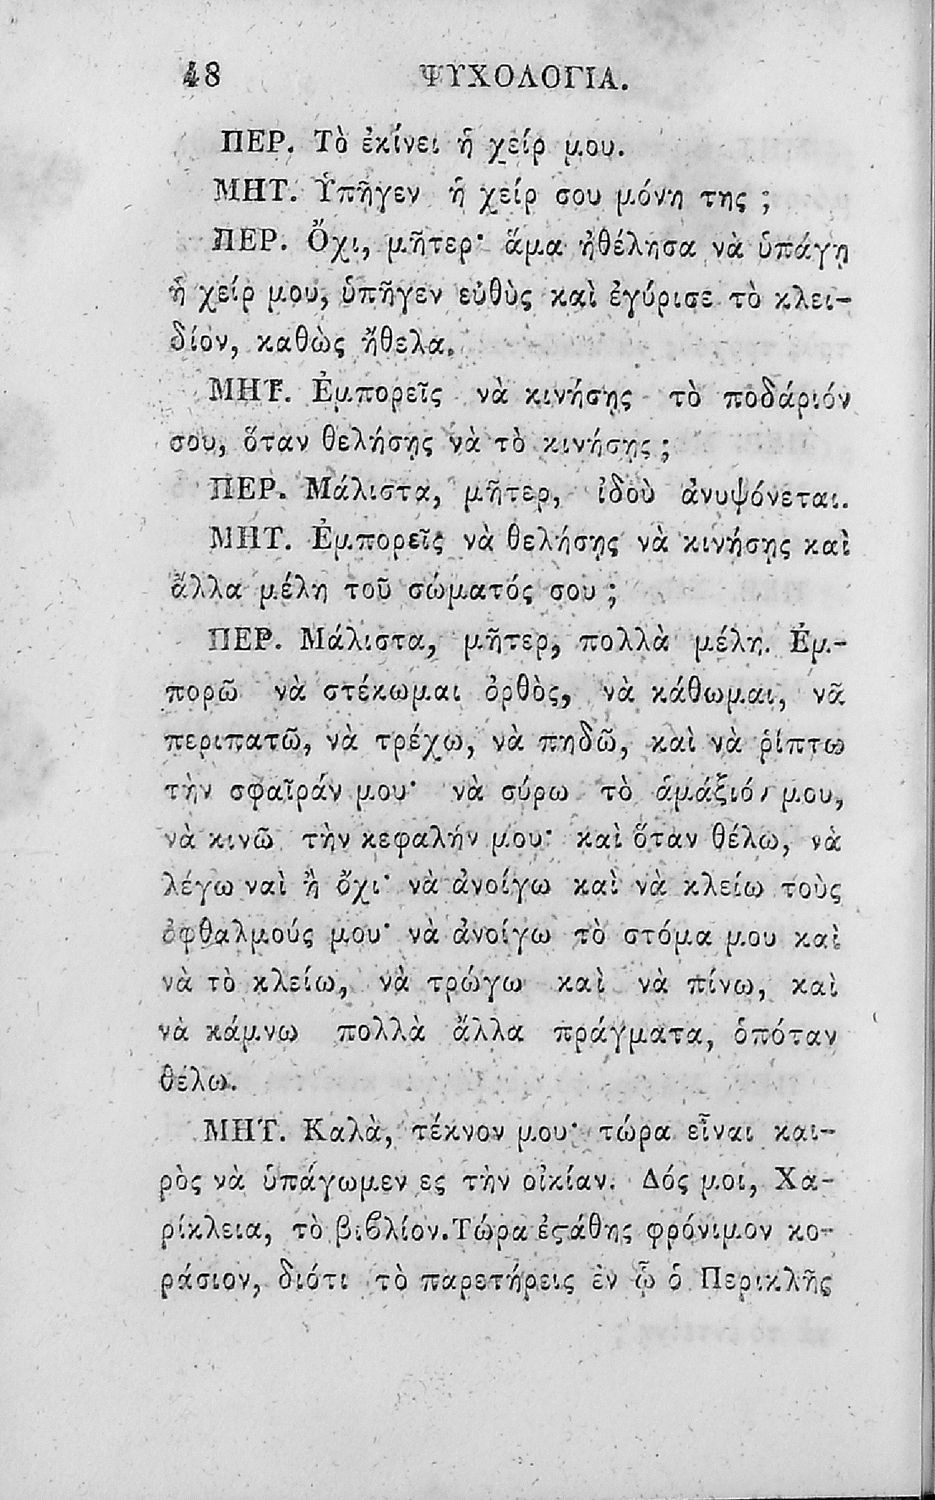 48 ΨΥΧΟΛΟΓΙΑ.
ΠΕΡ. Τὸ ἐκίνει ἡ χείρ μου.
ΜΗΤ. Ὑπῆγεν ἡ χείρ σου μόνη της ;
ΠΕΡ. Ὄχι, μῆτερ· ἅμα ἠθέλησα νὰ ὑπάγῃ
ἡ χείρ μου, ὑπῆγεν εὐθὺς καὶ ἐγύρισε τὸ κλει-
δίον, καθὼς ἤθελα.
ΜΗΤ. Ἐμπορεῖς νὰ κινήσῃς τὸ ποδάριόν
σου, ὅταν θελήσῃς νὰ τὸ κινήσῃς ;
ΠΕΡ. Μάλιστα, μῆτερ, ἰδοὺ ἀνυψόνεται.
ΜΗΤ. Ἐμπορεῖς νὰ θελήσῃς νὰ κινήσῃς καὶ
ἄλλα μέλη τοῦ σώματός σου ;
ΠΕΡ. Μάλιστα, μῆτερ, πολλὰ μέλη. Ἐμ-
πορῶ νὰ στέκωμαι ὀρθὸς, νὰ κάθωμαι, νᾶ
περιπατῶ, νὰ τρέχω, νὰ πηδῶ, καὶ νὰ ῥίπτω
τὴν σφαῖράν μου· νὰ σύρω τὸ ἁμάξιόν μου,
νὰ κινῶ τὴν κεφαλήν μου· καὶ ὅταν θέλω, νὰ
λέγω ναὶ ἢ ὄχι· νὰ ἀνοίγω καὶ νὰ κλείω τοὺς
ὀφθαλμούς μου· νὰ ἀνοίγω τὸ στόμα μου καὶ
νὰ τὸ κλείω, νὰ τρώγω καὶ νὰ πίνω, καὶ
νὰ κάμνω πολλὰ ἄλλα πράγματα, ὁπόταν
θέλω.
ΜΗΤ. Καλὰ, τέκνον μου· τώρα εἶναι και-
ρὸς νὰ ὑπάγωμεν ες τὴν οἰκίαν. Δός μοι, Χα-
ρίκλεια, τὸ βιβλίον. Τώρα ἐστάθης φρόνιμον κο-
ράσιον, διότι τὸ παρετήρεις ἐν ᾧ ὁ Περικλῆς